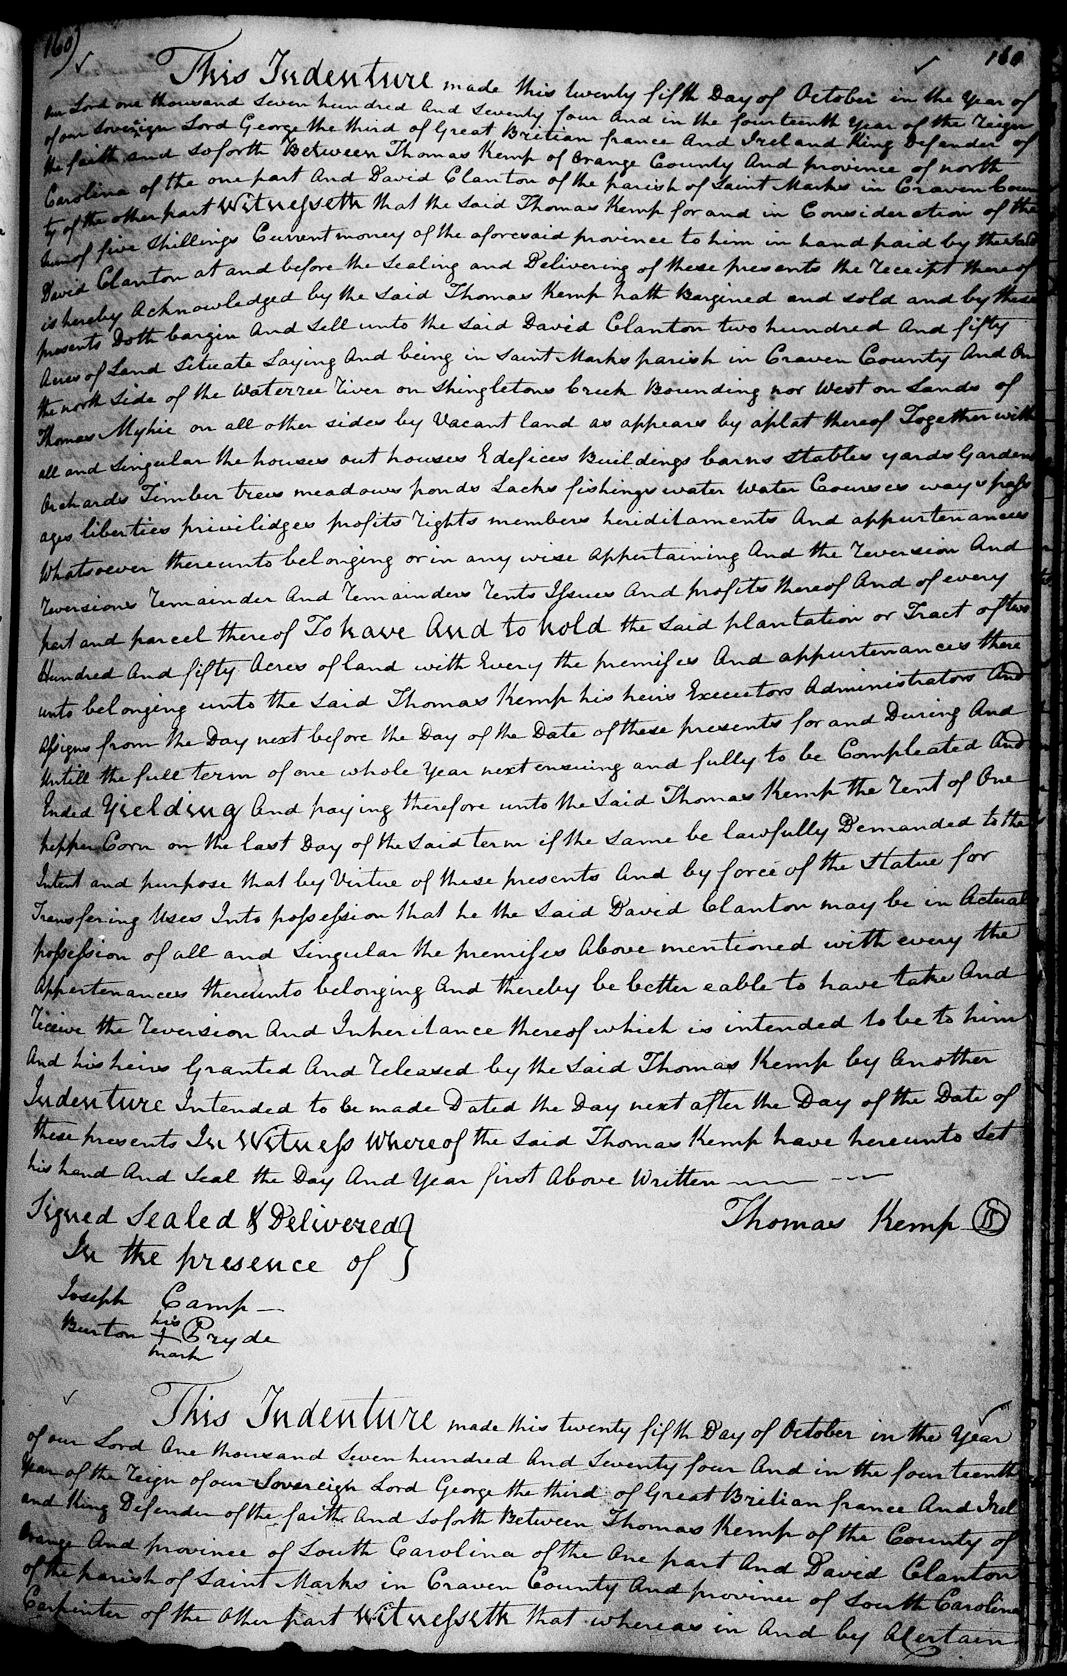 160) 160
This Indenture made this twenty fifth Day of October in the Year of
our Lord one thousand Seven hundred And Seventy four And in the fourteenth Year of the Reign
of our Sovereign Lord George the third of Great Britian france And Ireland King Defender of
the faith and soforth Between Thomas Kemp of Orange County And province of north
Carolina of the one part And David Clanton of the parish of Saint Marks in Craven Coun
ty of the other part Witnesseth that the Said Thomas Kemp for and in Consideration of the
Sum of five Shillings Current money of the aforesaid province to him in hand paid by the said
David Clanton at and before the Sealing and Delivering of these presents the receipt thereof
is hereby Acknowledged by the Said Thomas Kemp hath Bargined and sold and by these
presents Doth bargin And Sell unto the Said David Clanton two hundred And fifty
Acres of Land Situate Laying And being in Saint Marks parish in Craven County And On
the north Side of the Waterree River on Shingletons Creek Bounding nor West on Lands of
Thomas Myhie on all other sides by Vacant land as appears by a plat thereof Together with
all and Singular the houses out houses Edefices Buildings barns stables yards Gardens
Orchards Timber trees meadows ponds Lacks fishings water Water Courses ways pass
ages liberties privilidges profits rights members heriditaments And appurtenances
Whatsoever thereunto belonging or in any wise Appertaining And the Reversion And
Reversions Remainder And Remainders Rents Issues And profits thereof And of every
part and parcel thereof To have And to hold the Said plantation or Tract of two
Hundred And fifty Acres of land with Every the premises And appurtenances there
unto belonging unto the Said Thomas Kemp his heirs Executors Administrators And
Assigns from the Day next before the Day of the Date of these presents for and During And
Untill the full term of one whole Year next ensuing and fully to be Compleated And
Ended Yielding And paying therefore unto the Said Thomas Kemp the Rent of One
pepper Corn on the last Day of the Said term if the Same be lawfully Demanded to the
Intent and purpose that by Virtue of these presents And by force of the Statue for
Transfering Uses Into possession that he the Said David Clanton may be in Actual
possession of all and Singular the premises Above mentioned with every the
Appertenances thereunto belonging And thereby be better eable to have take And
Receive the Reversion And Inheritance thereof which is intended to be to him
And his heirs Granted And Released by the Said Thomas Kemp by Another
Indenture Intended to be made Dated the Day next after the Day of the Date of
these presents In Witness Whereof the Said Thomas Kemp have hereunto Set
his hand And Seal the Day And Year first Above Written
Signed Sealed & Delivered } Thomas Kemp
In the presence of }
Joseph Camp
his
Burton + Pryde
mark
This Indenture made this twenty fifth Day of October in the Year
of our Lord One thousand Seven hundred And Seventy four And in the fourteenth
Year of the Reign of our Sovereign Lord George the third of Great Britian france And Irel
and King Defender of the faith And Soforth Between Thomas Kemp of the County of
Orange And province of South Carolina of the One part And David Clanton
of the parish of Saint Marks in Craven County And province of South Carolina
Carpinter of the Other part Witnesseth that whereas in And by A Certain